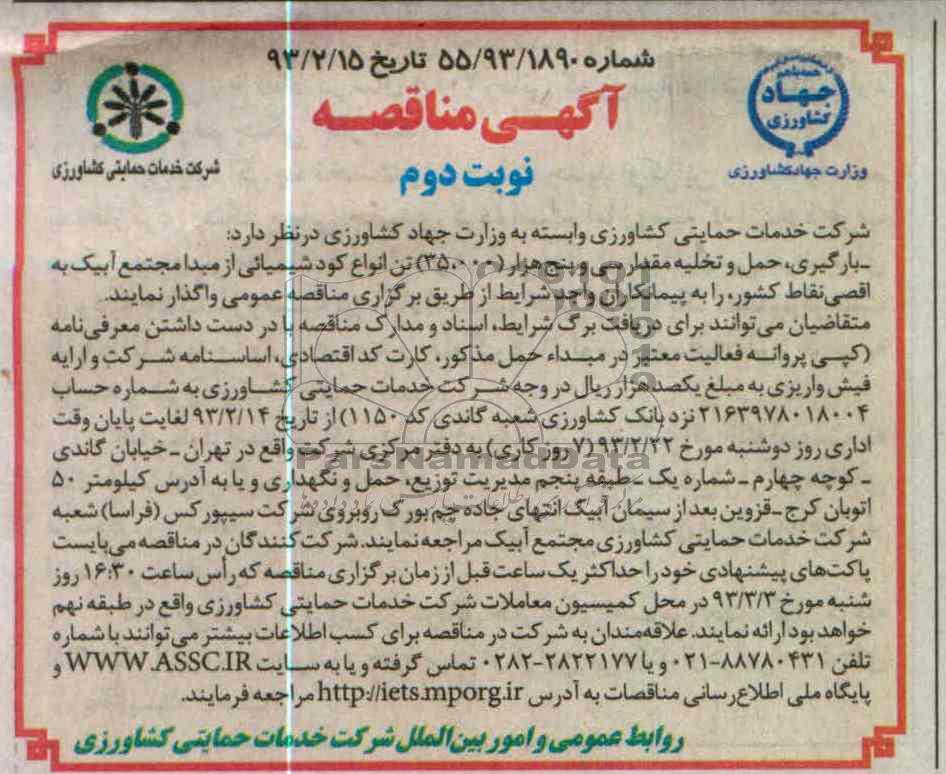 شماره ۵۵/۹۳/۱۸۹۰ تاریخ ۹۳/۲/۱۵
آگهی مناقصه
نوبت دوم
همه با هم
جهاد
کشاورزی
وزارت جهادکشاورزی
شرکت خدمات حمایتی کشاورزی
شرکت خدمات حمایتی کشاورزی وابسته به وزارت جهاد کشاورزی درنظر دارد:
-بارگیری، حمل و تخلیه مقدار سی و پنج هزار (۳۵,۰۰۰) تن انواع کود شیمیائی از مبدا مجتمع آبیک به
اقصی نقاط کشور، را به پیمانکاران واجد شرایط از طریق برگزاری مناقصه عمومی واگذار نمایند.
متقاضیان می‌توانند برای دریافت برگ شرایط، اسناد و مدارک مناقصه با در دست داشتن معرفی‌نامه
(کپی پروانه فعالیت معتبر در مبداء حمل مذکور، کارت کد اقتصادی، اساسنامه شرکت و ارایه
فیش واریزی به مبلغ یکصد هزار ریال در وجه شرکت خدمات حمایتی کشاورزی به شماره حساب
۲۱۶۳۹۷۸۰۱۸۰۰۴ نزد بانک کشاورزی شعبه گاندی کد ۱۱۵۰) از تاریخ ۹۳/۲/۱۴ لغایت پایان وقت
اداری روز دوشنبه مورخ ۹۳/۲/۲۲ (۷ روز کاری) به دفتر مرکزی شرکت واقع در تهران -خیابان گاندی
- کوچه چهارم -شماره یک -طبقه پنجم مدیریت توزیع، حمل و نگهداری و یا به آدرس کیلومتر ۵۰
اتوبان کرج -قزوین بعد از سیمان آبیک انتهای جاده چم بورک روبروی شرکت سیپورکس (فراسا) شعبه
شرکت خدمات حمایتی کشاورزی مجتمع آبیک مراجعه نمایند. شرکت کنندگان در مناقصه می‌بایست
پاکت‌های پیشنهادی خود را حداکثر یک ساعت قبل از زمان برگزاری مناقصه که رأس ساعت ۱۶:۳۰ روز
شنبه مورخ ۹۳/۳/۳ در محل کمیسیون معاملات شرکت خدمات حمایتی کشاورزی واقع در طبقه نهم
خواهد بود ارائه نمایند. علاقه‌مندان به شرکت در مناقصه برای کسب اطلاعات بیشتر می‌توانند با شماره
تلفن ۸۸۷۸۰۴۳۱-۰۲۱ و یا ۲۸۲۲۱۷۷-۰۲۸۲ تماس گرفته و یا به سایت WWW.ASSC.IR و
پایگاه ملی اطلاع‌رسانی مناقصات به آدرس http://iets.mporg.ir مراجعه فرمایند.
روابط عمومی و امور بین‌الملل شرکت خدمات حمایتی کشاورزی
ParsNamadData